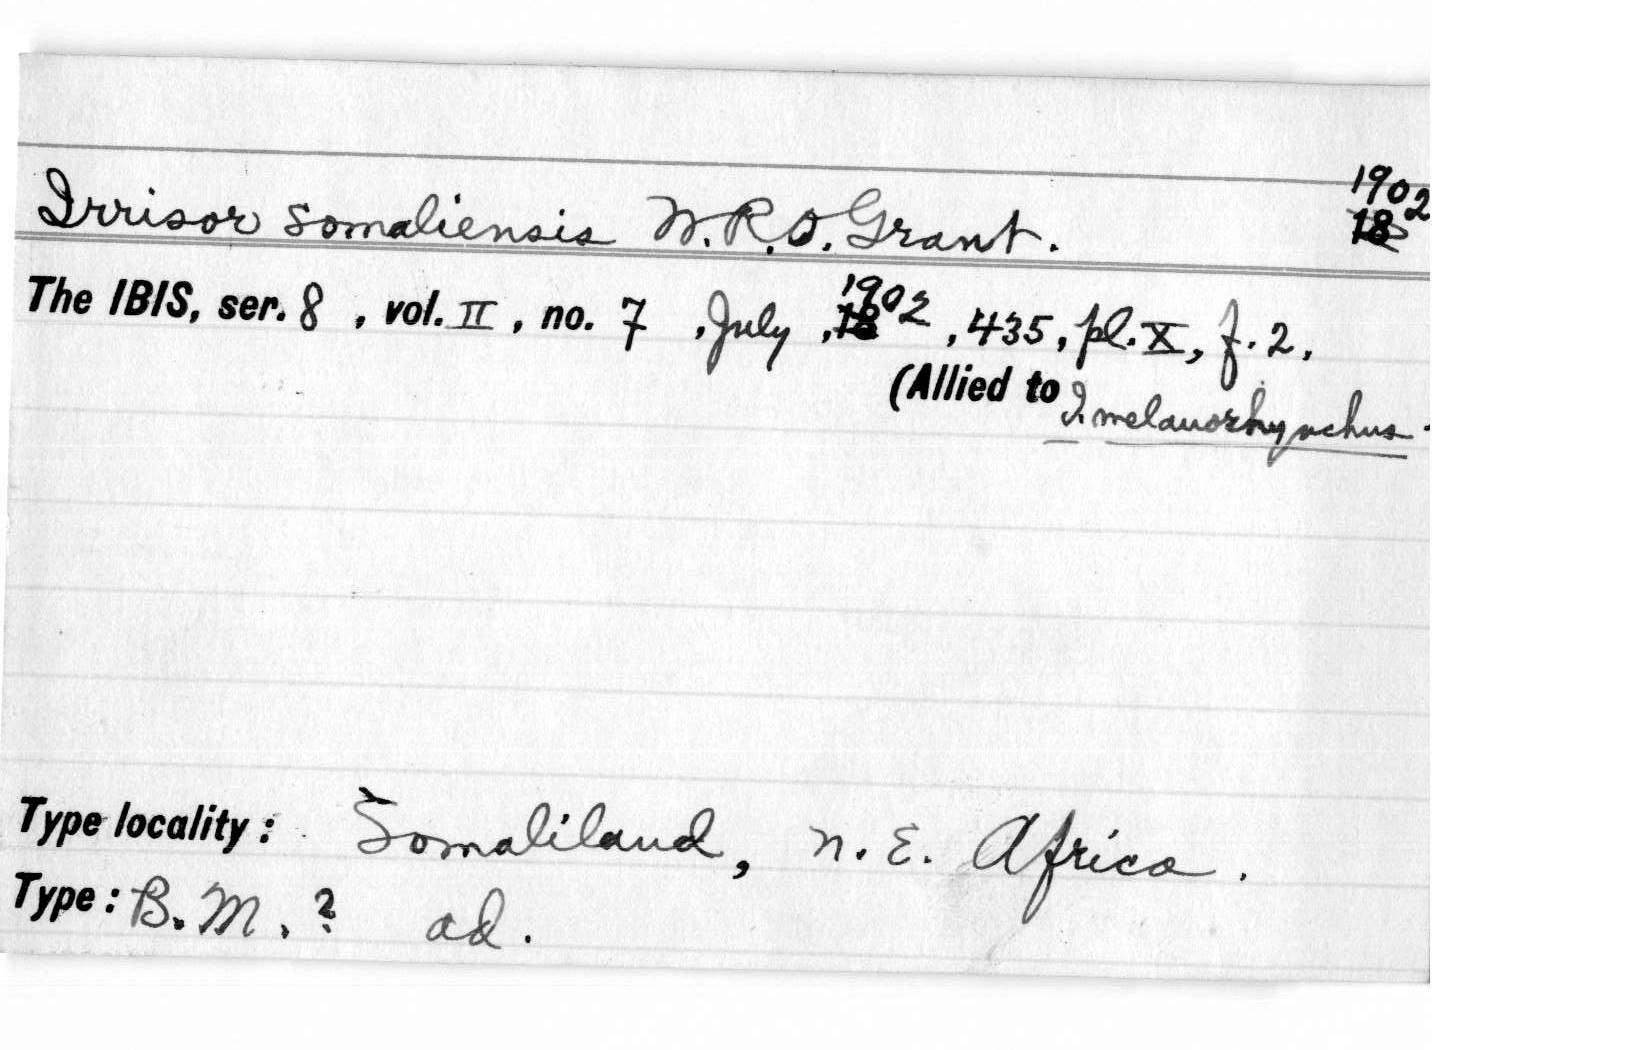 Irrisor somaliensis W.R.O. Grant. 1902
18
The IBIS, ser. 8 , vol. II , no. 7 , July , 18 1902 , 435, pl. X, f. 2.
(Allied to I. melanorhynchus.
Type locality: Somaliland, N. E. Africa.
Type: B. M. ? ad.